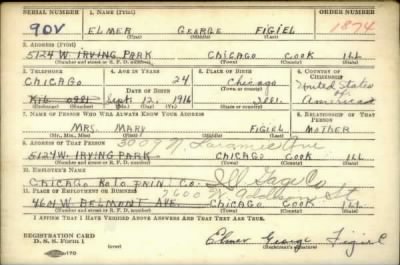 SERIAL NUMBER 1. NAME (Print) ORDER NUMBER
90V ELMER GEORGE FIGIEL 1874
(First) (Middle) (Last)
2. ADDRESS (Print)
5124 W. IRVING PARK CHICAGO COOK ILL
(Number and street or R. F. D. number) (Town) (County) (State)
3. TELEPHONE 4. AGE IN YEARS 5. PLACE OF BIRTH 6. COUNTRY OF CITIZENSHIP
CHICAGO 24 Chicago United States
DATE OF BIRTH (Town or county) of
Sept 12, 1916 Ill. America
7. NAME OF PERSON WHO WILL ALWAYS KNOW YOUR ADDRESS 8. RELATIONSHIP OF THAT PERSON
MRS. MARY FIGIEL MOTHER
(Mr., Mrs., Miss) (First) (Middle) (Last)
9. ADDRESS OF THAT PERSON 3009 N. Laramie Ave
5124 W. IRVING PARK CHICAGO COOK ILL
(Number and street or R. F. D. number) (Town) (County) (State)
10. EMPLOYER'S NAME
CHICAGO PAINT CO. Ill Gage Co
11. PLACE OF EMPLOYMENT OR BUSINESS 7600 St
4601 W BELMONT AVE. CHICAGO COOK ILL
(Number and street or R. F. D. number) (Town) (County) (State)
I AFFIRM THAT I HAVE VERIFIED ABOVE ANSWERS AND THAT THEY ARE TRUE.
REGISTRATION CARD
D. S. S. Form 1 (over) Elmer George Figiel
(Registrant's signature)